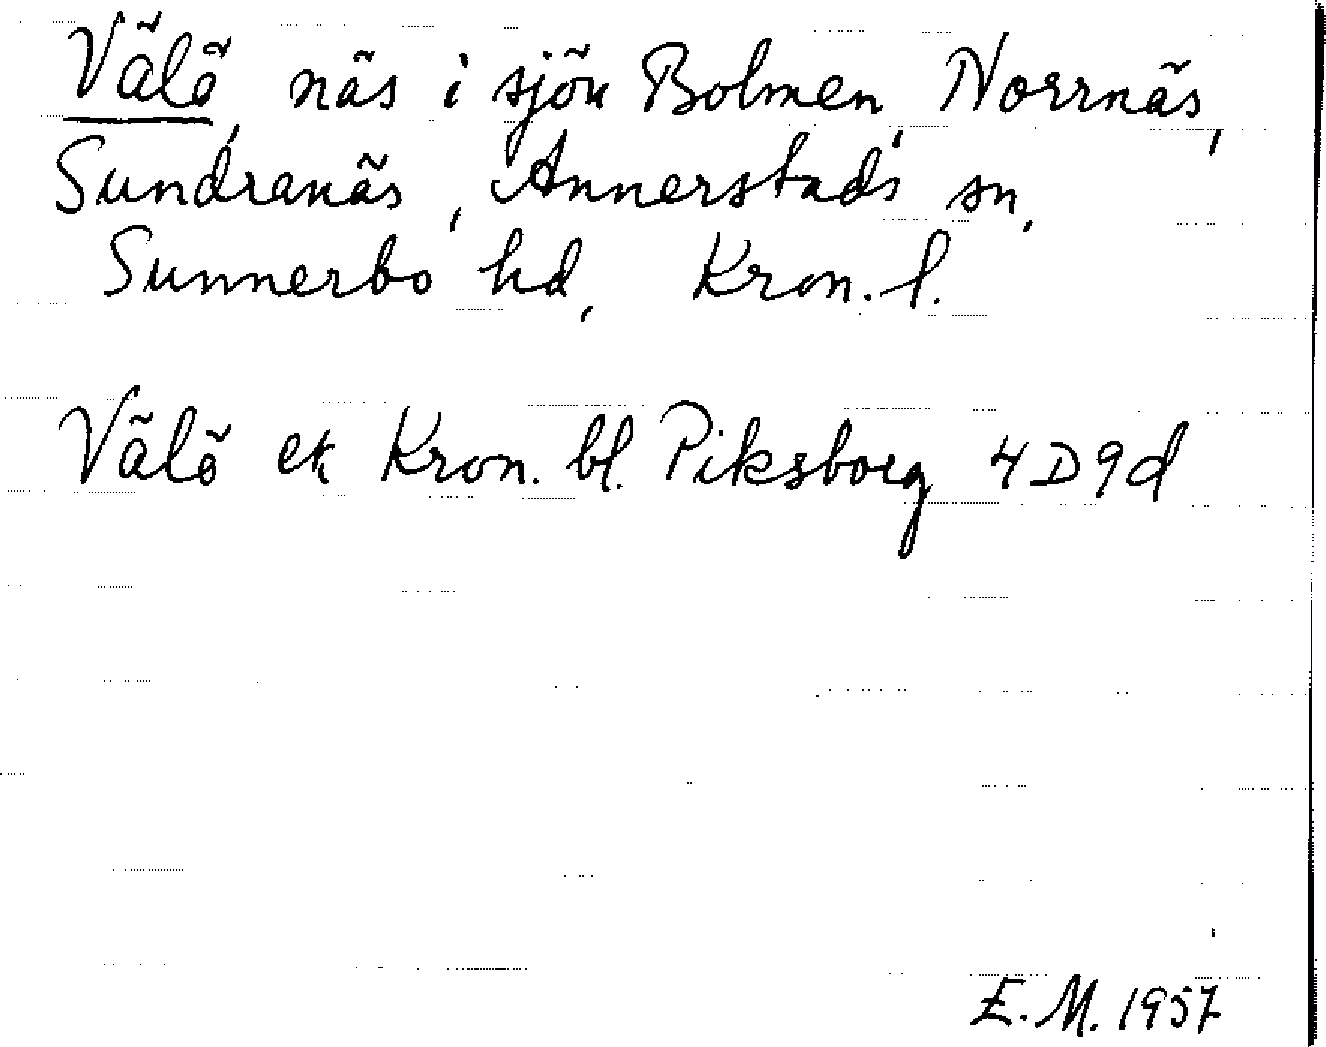 Välö, näs i sjön Bolmen, Norrnäs,
Sundranäs, Annerstads sn,
Sunnerbo hd, Kron. l.
Välö ek Kron. bl. Piksborg 4D9d
E.M. 1957